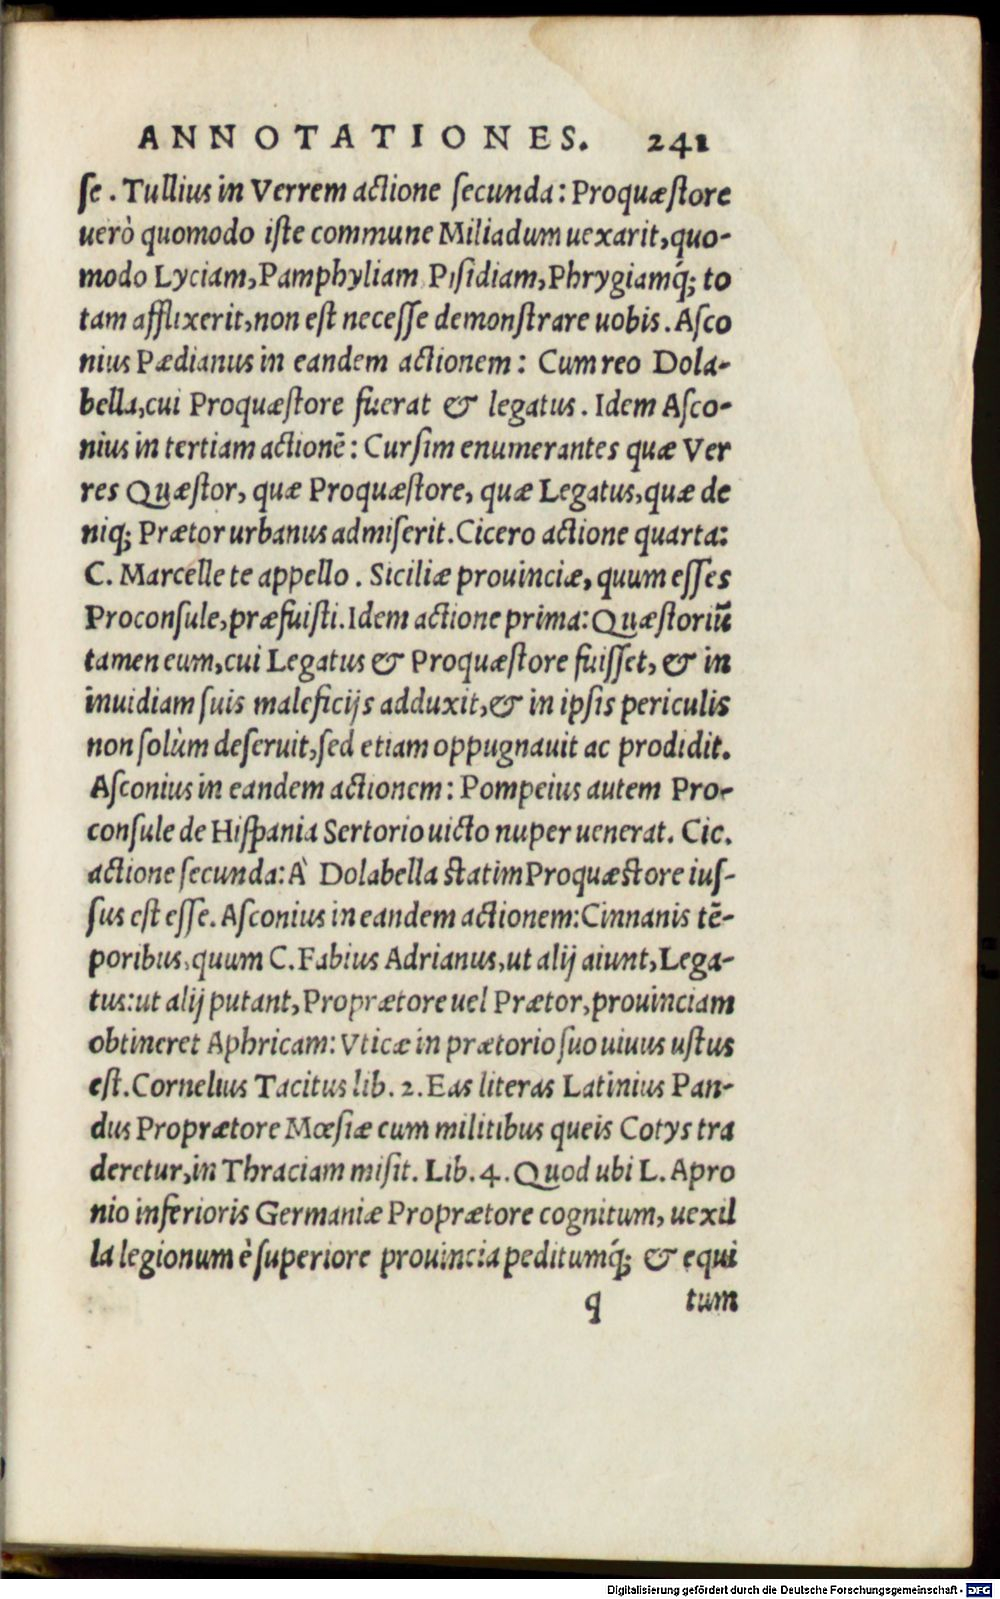 ANNOTATIONES. 241
ſe. Tullius in Verrem actione ſecunda: Proquæſtore
uerò quomodo iſte commune Miliadum uexarit, quo-
modo Lyciam, Pamphyliam Piſidiam, Phrygiamq́; to
tam afflixerit, non eſt neceſſe demonſtrare uobis. Aſco
nius Pædianus in eandem actionem: Cum reo Dola-
bella, cui Proquæſtore fuerat & legatus. Idem Aſco-
nius in tertiam actionē: Curſim enumerantes quæ Ver
res Quæſtor, quæ Proquæſtore, quæ Legatus, quæ de
niq; Prætor urbanus admiſerit. Cicero actione quarta:
C. Marcelle te appello. Siciliæ prouinciæ, quum eſſes
Proconſule, præfuiſti. Idem actione prima: Quæſtoriū
tamen eum, cui Legatus & Proquæſtore fuiſſet, & in
inuidiam ſuis maleficijs adduxit, & in ipſis periculis
non ſolùm deſeruit, ſed etiam oppugnauit ac prodidit.
Aſconius in eandem actionem: Pompeius autem Pro-
conſule de Hiſpania Sertorio uicto nuper uenerat. Cic.
actione ſecunda: À Dolabella ſtatim Proquæſtore iuſ-
ſus eſt eſſe. Aſconius in eandem actionem: Cinnanis tē-
poribus, quum C. Fabius Adrianus, ut alij aiunt, Lega-
tus: ut alij putant, Proprætore uel Prætor, prouinciam
obtineret Aphricam: Vticæ in prætorio ſuo uiuus uſtus
eſt. Cornelius Tacitus lib. 2. Eas literas Latinius Pan-
dus Proprætore Mœſiæ cum militibus queis Cotys tra
deretur, in Thraciam miſit. Lib. 4. Quod ubi L. Apro
nio inferioris Germaniæ Proprætore cognitum, uexil
la legionum è ſuperiore prouincia peditumq́; & equi
q tum
Digitalisierung gefördert durch die Deutsche Forschungsgemeinschaft - DFG